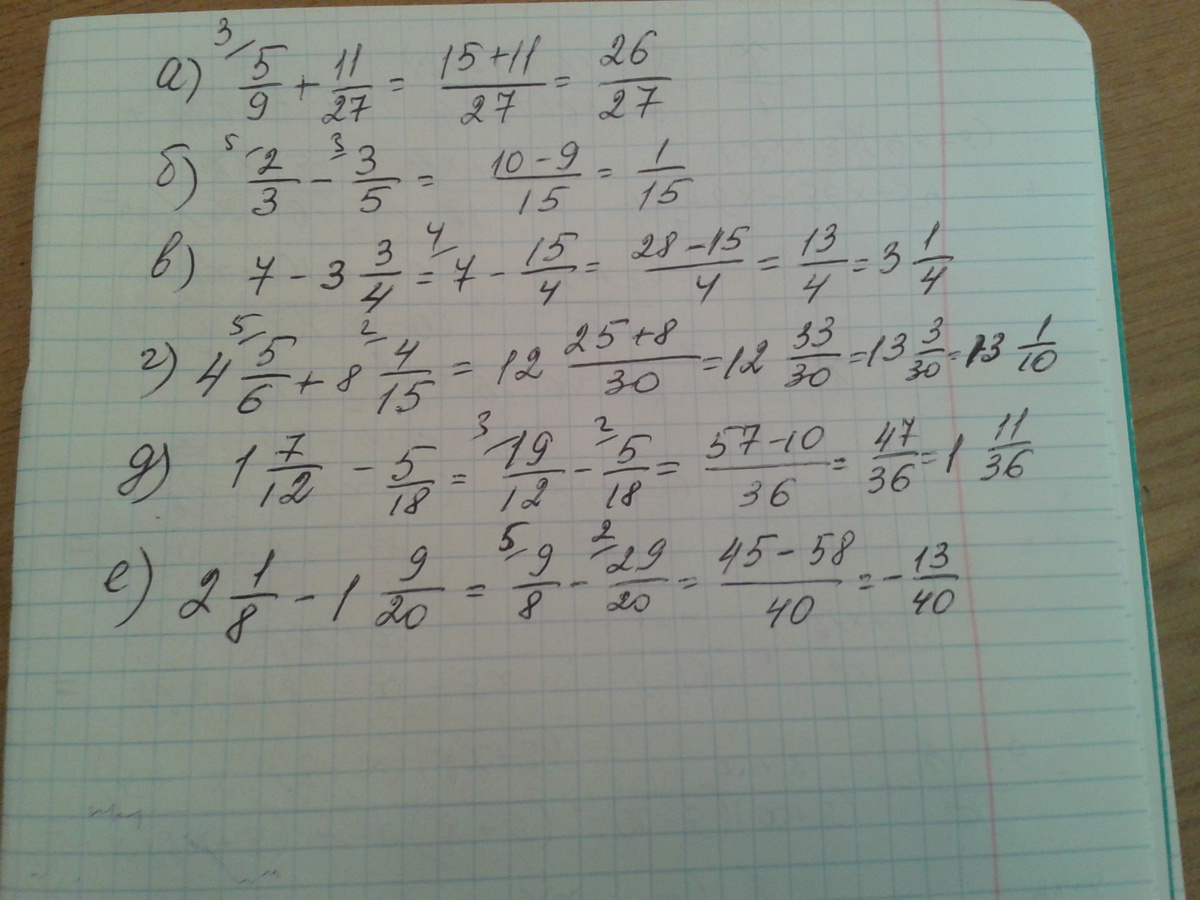 а) ³⁄ 5/9 + 11/27 = (15+11)/27 = 26/27
б) ⁵⁄ 2/3 - ³⁄ 3/5 = (10-9)/15 = 1/15
в) 7 - 3 3/4 = ⁴⁄ 7 - 15/4 = (28-15)/4 = 13/4 = 3 1/4
г) 4 ⁵⁄ 5/6 + 8 ²⁄ 4/15 = 12 (25+8)/30 = 12 33/30 = 13 3/30 = 13 1/10
д) 1 7/12 - 5/18 = ³⁄ 19/12 - ²⁄ 5/18 = (57-10)/36 = 47/36 = 1 11/36
е) 2 1/8 - 1 9/20 = ⁵⁄ 9/8 - ²⁄ 29/20 = (45-58)/40 = - 13/40